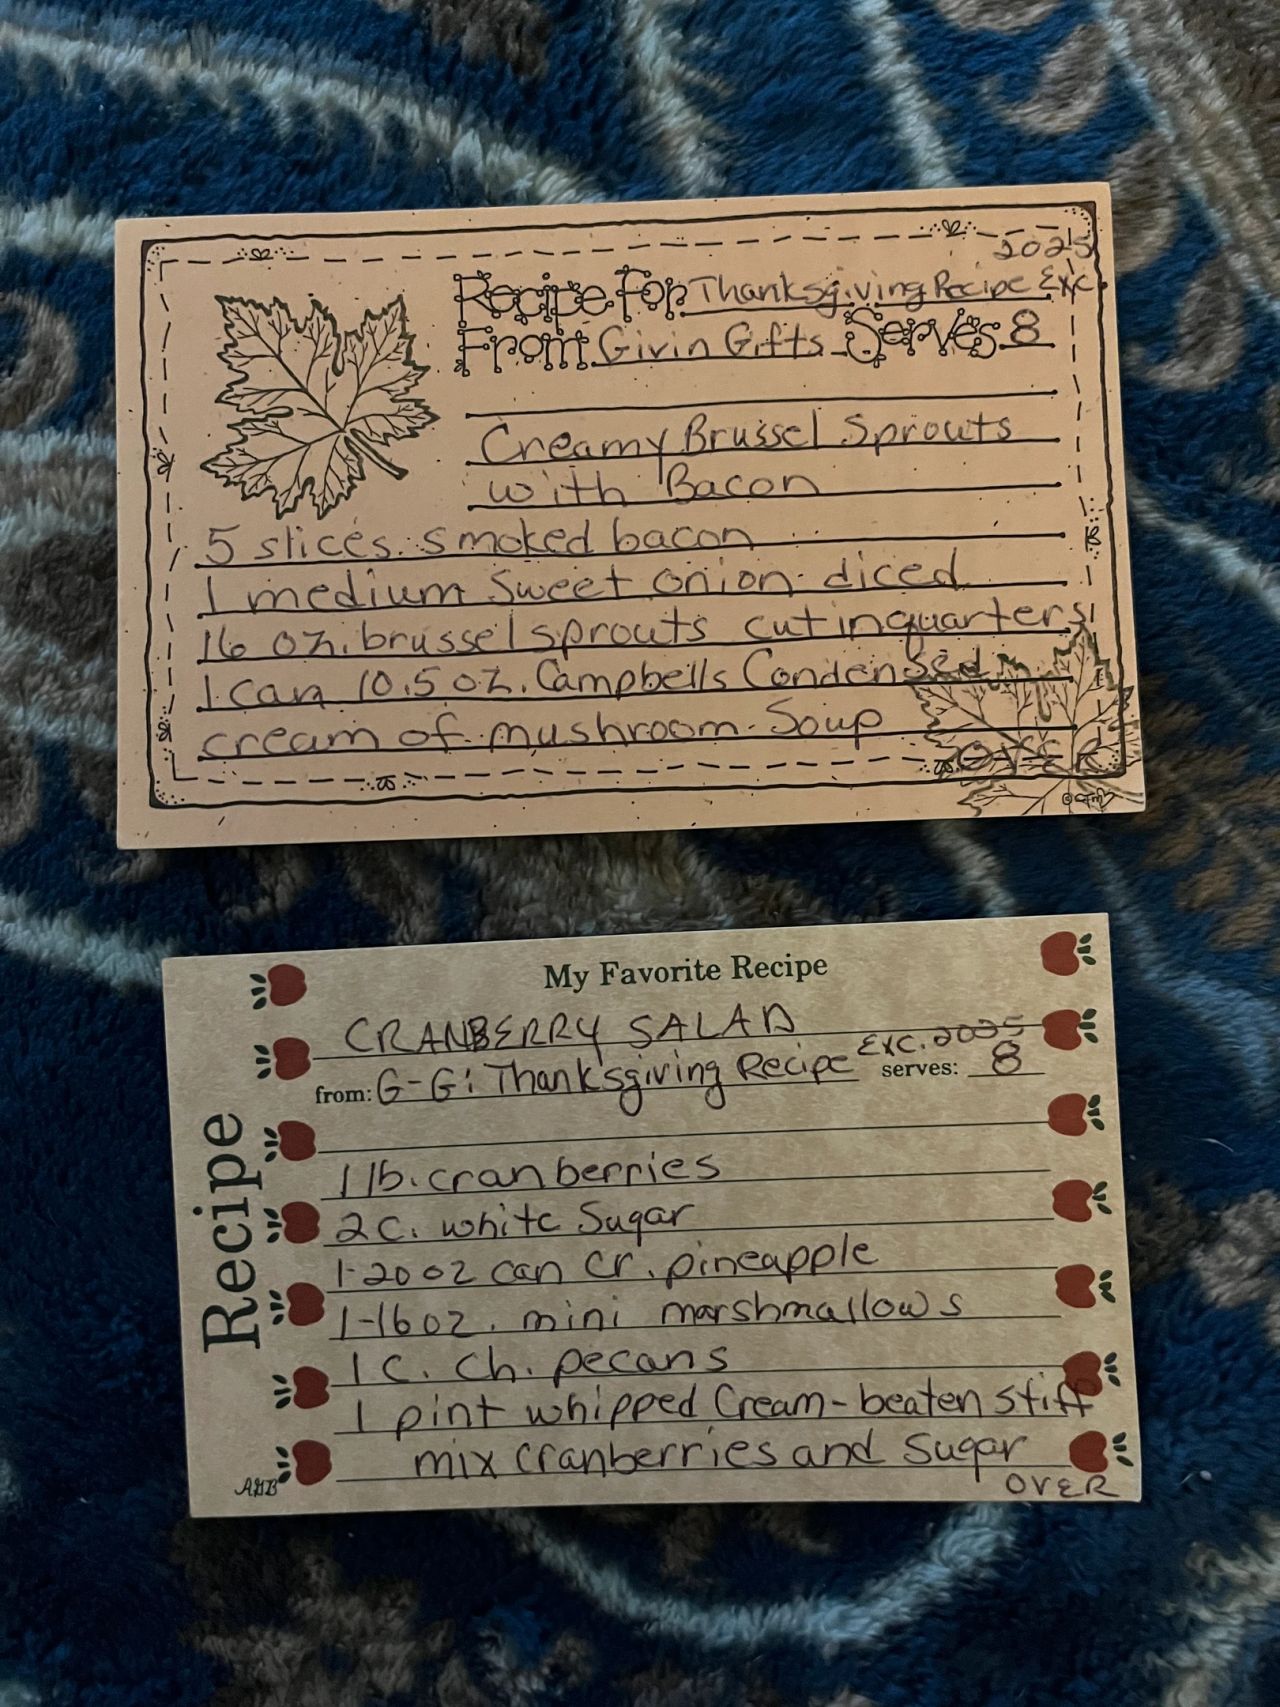 2025
Recipe For Thanksgiving Recipe Exc.
From Givin Gifts Serves 8
Creamy Brussel Sprouts
with Bacon
5 slices smoked bacon
1 medium Sweet onion diced
16 oz. brussel sprouts cut in quarters
1 can 10.5 oz. Campbells Condensed
cream of mushroom Soup
OVER
My Favorite Recipe
CRANBERRY SALAD
Exc. 2025
from: G-G: Thanksgiving Recipe serves: 8
Recipe
1 lb. cranberries
2 C. white Sugar
1-20 oz can cr. pineapple
1-16 oz. mini marshmallows
1 C. Ch. pecans
1 pint whipped Cream-beaten stiff
mix cranberries and Sugar
OVER